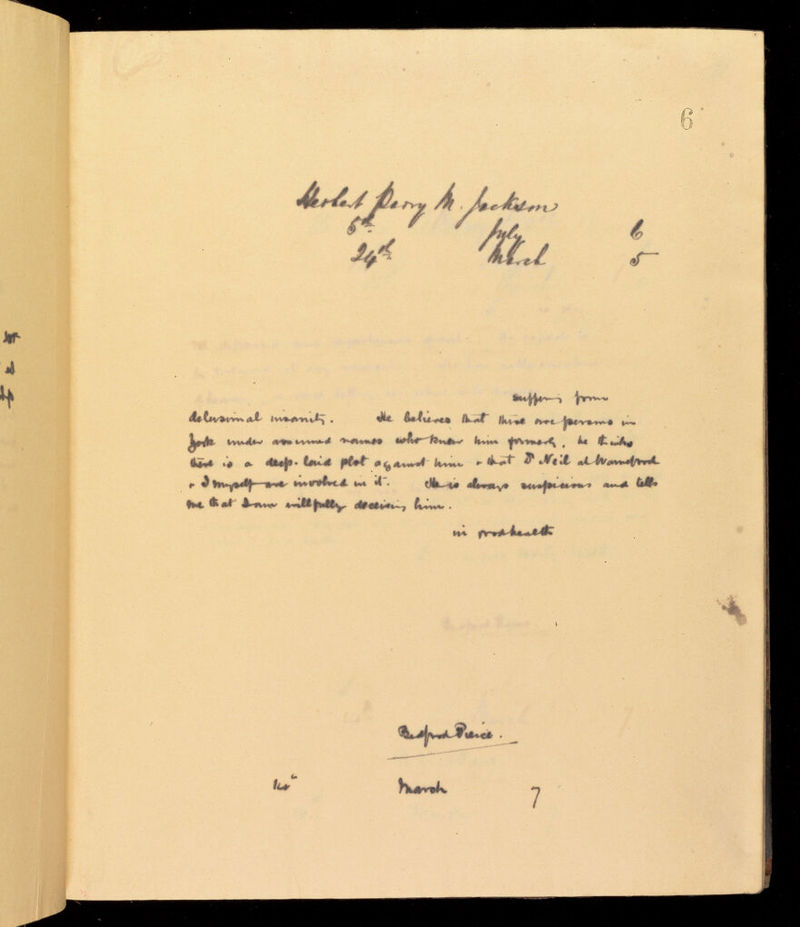 6
Herbert Percy M. Jackson
5th July 6
24th March 5
suffering from
delusional insanity. He believes that there are persons in
York under assumed names who knew him formerly, he thinks
there is a deep-laid plot against him & that Dr Neil at Warneford
& I myself are involved in it. He is always suspicious and tells
me that I am willfully deceiving him.
in good health
Bedford Pierce.
March 7